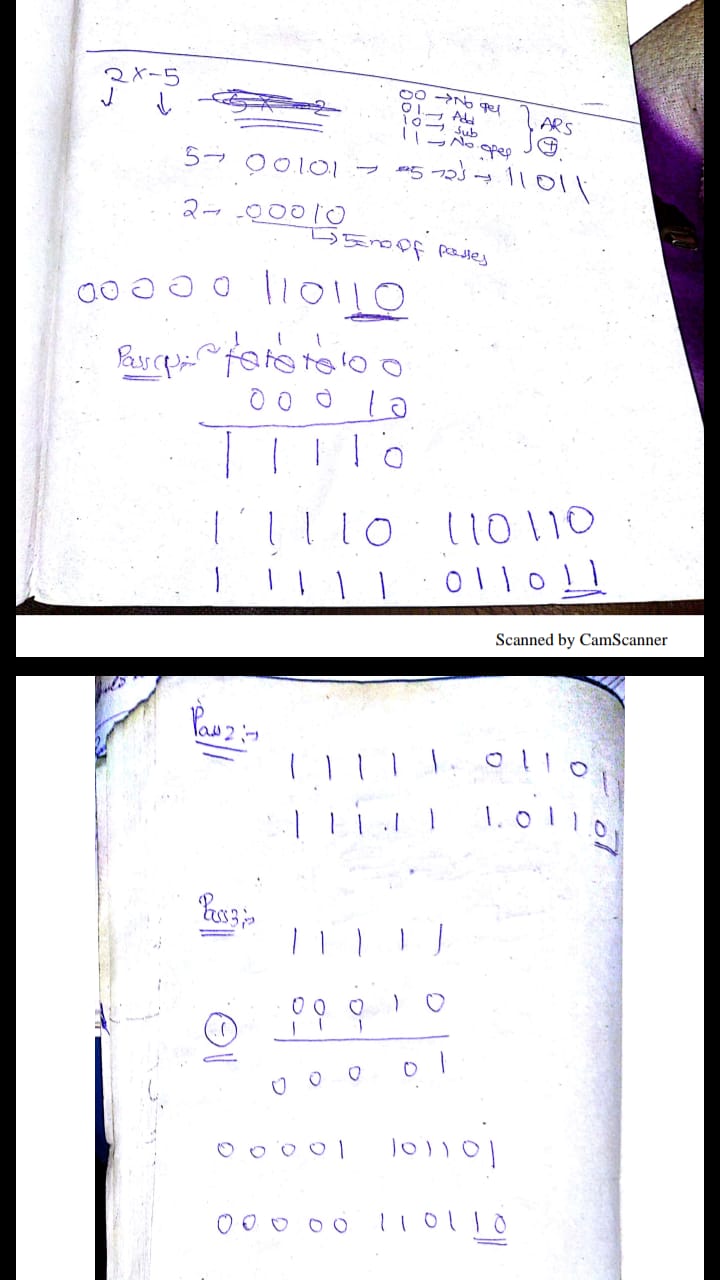 2 x -5
↓ ↓
00 → No oper
01 → Add
10 → Sub
11 → No oper
ARS
5 → 00101 → -5 → 2's → 11011
2 → 00010
↳ 5 = no of passes
00000 110110
Pass 1 :-
00
00010
11110
11110 110110
11111 011011
Scanned by CamScanner
Pass 2 :→
11111 01101
11111 101101
Pass 3 :→
11111
00010
1
1 1 1
00001
00001 101101
00000 110110